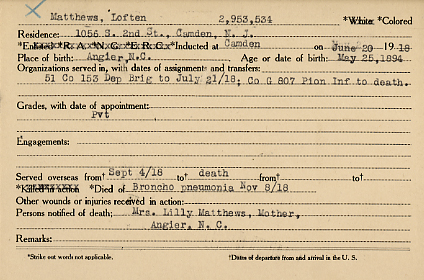 Matthews, Loften 2,953,534 *White *Colored
Residence: 1056 S. 2nd St., Camden, N. J.
*Enlisted *R. A. *N. G. *E. R. C. *Inducted at Camden on June 20 1918
Place of birth: Angier, N.C. Age or date of birth: May 25, 1894
Organizations served in, with dates of assignments and transfers:
51 Co 153 Dep Brig to July 21/18; Co G 807 Pion Inf to death.
Grades, with date of appointment:
Pvt
Engagements:
Served overseas from† Sept 4/18 to† death from† to†
*Killed in action *Died of Broncho pneumonia Nov 8/18
Other wounds or injuries received in action:
Persons notified of death: Mrs. Lilly Matthews, Mother,
Angier, N. C.
Remarks:
*Strike out words not applicable. †Dates of departure from and arrival in the U. S.